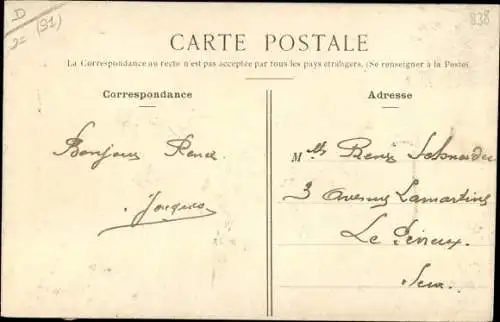 D
(91)
838
CARTE POSTALE
La Correspondance au recto n'est pas acceptée par tous les pays étrangers. (Se renseigner à la Poste)
Correspondance
Adresse
Bonjour Renée
Jacques
Mlle Renée Schneider
3 avenue Lamartine
Le Perreux
Seine